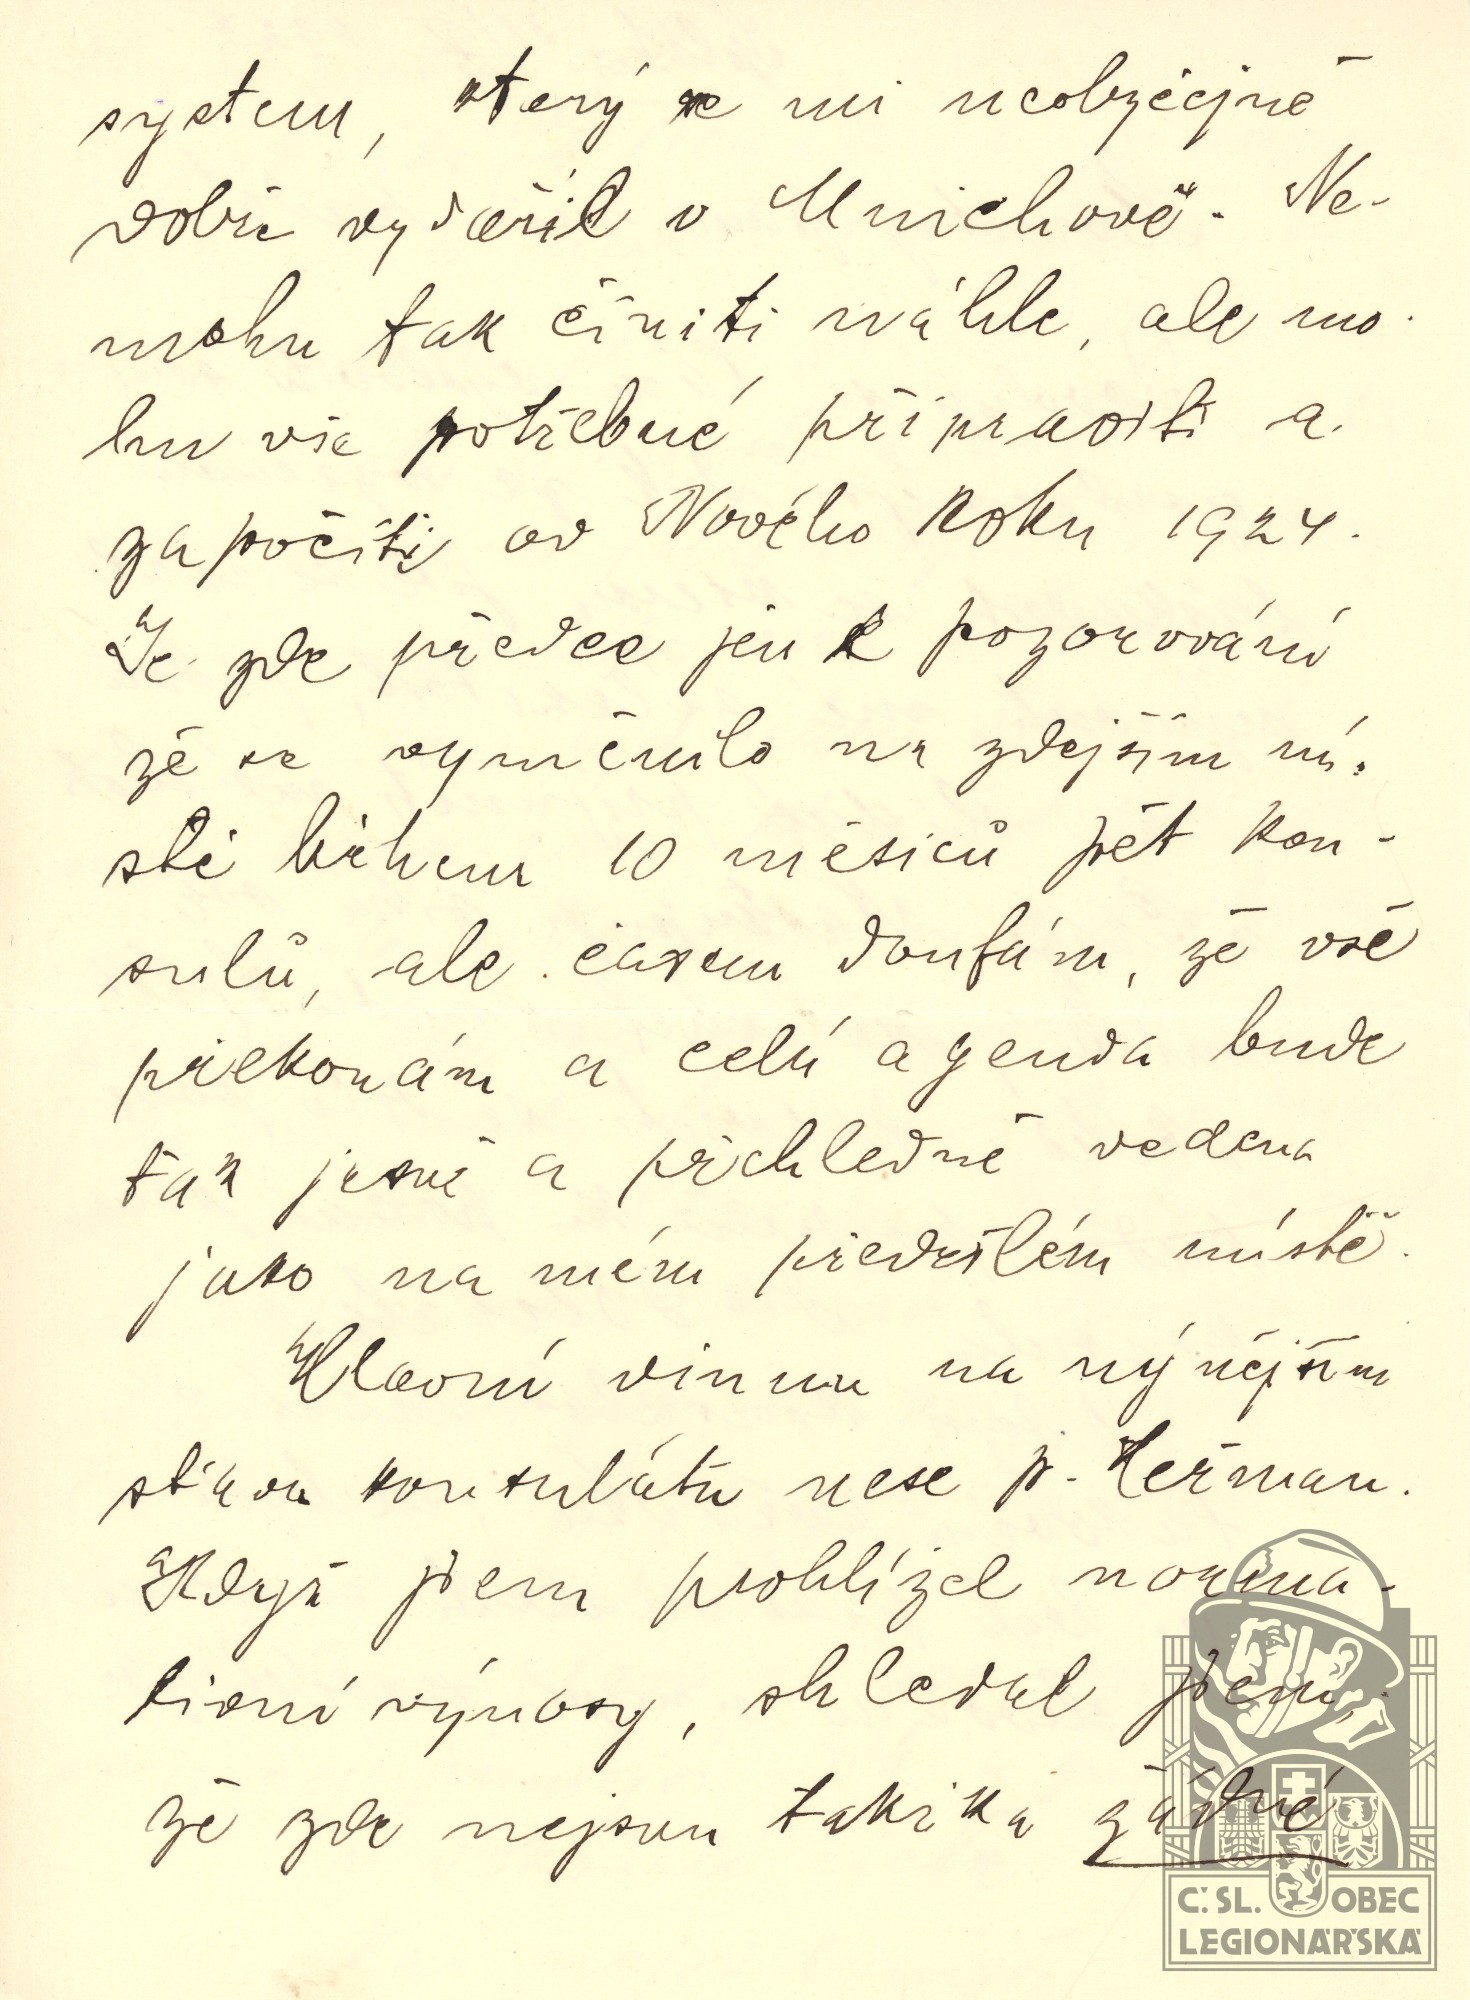 system, který se mi neobyčejně
dobře vydařil v Mnichově. Ne-
mohu tak činiti náhle, ale mo-
hu vše potřebné připraviti a
započíti od Nového Roku 1924.
Je zde předce jen k pozorování
že se vyměnilo na zdejším mí-
stě během 10 měsíců pět kon-
sulů, ale časem doufám, že vše
překonám a celá agenda bude
tak jasně a přehledně vedena
jako na mém předešlém místě.
Hlavní vinnu na nynějším
stavu konsulátu nese p. Heřman.
Když jsem prohlížel norma-
tivní výnosy, shledal jsem,
že zde nejsou takřka žádné
Č. SL. OBEC
LEGIONÁŘSKÁ